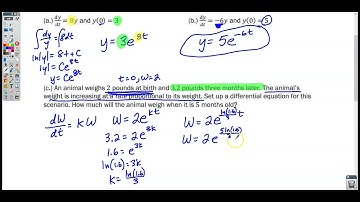 (a.) dy/dt = 8y and y(0) = 3
(b.) dy/dt = −6y and y(0) = 5
∫ dy/y = ∫8dt
ln|y| = 8t + C
|y| = Ce^8t
y = Ce^8t
y = 3e^8t
y = 5e^-6t
t=0, w=2
(c.) An animal weighs 2 pounds at birth and 3.2 pounds three months later. The animal's
weight is increasing at a rate proportional to its weight. Set up a differential equation for this
scenario. How much will the animal weigh when it is 5 months old?
dW/dt = kW
W = 2e^kt
3.2 = 2e^3k
1.6 = e^3k
ln(1.6) = 3k
k = ln(1.6)/3
W = 2e^(ln(1.6)/3 t)
W = 2e^